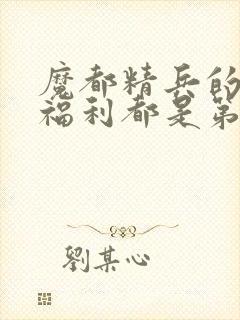 魔都精兵的
福利都是第
劉某心